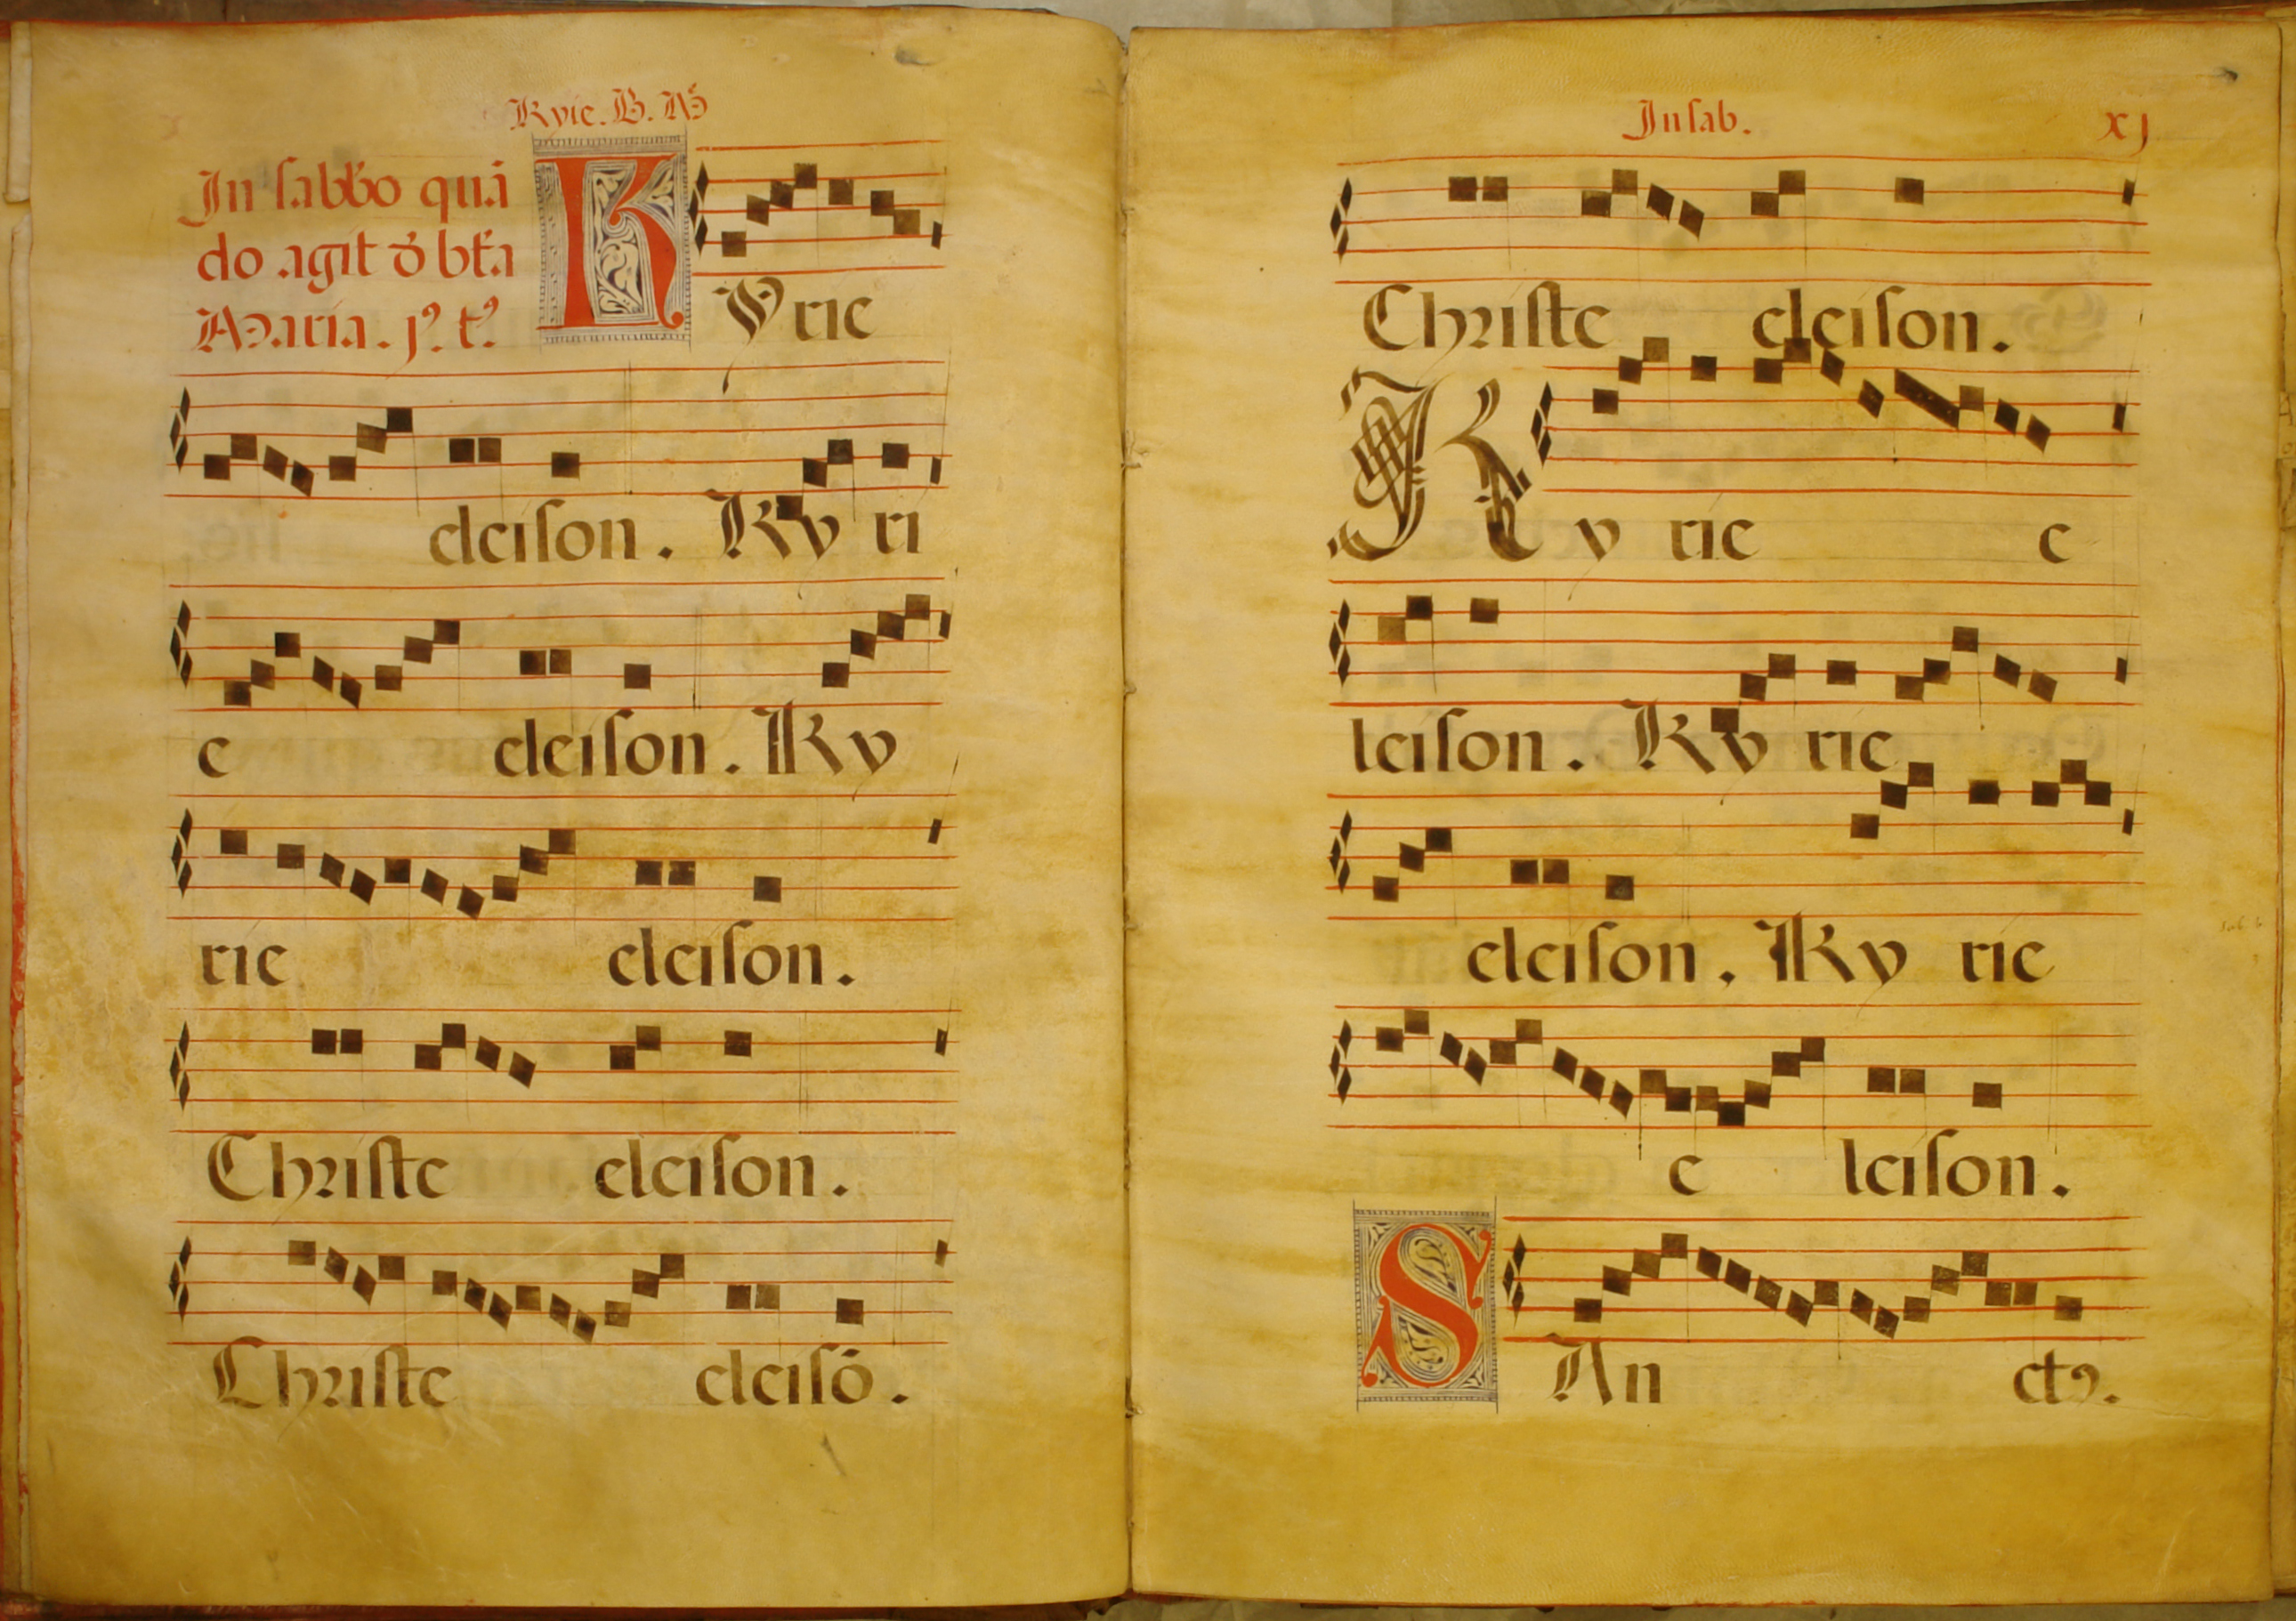 Kyie. B. M
In sabbo quā
do agit d bta
Maria. j. t.
KYrie
eleison. Ky ri
e eleison. Ky
rie eleison.
Christe eleison.
Christe eleisō.
In sab. xj
Christe eleison.
Ky rie e
leison. Ky rie
eleison. Ky rie
e leison.
SAn ctꝰ.